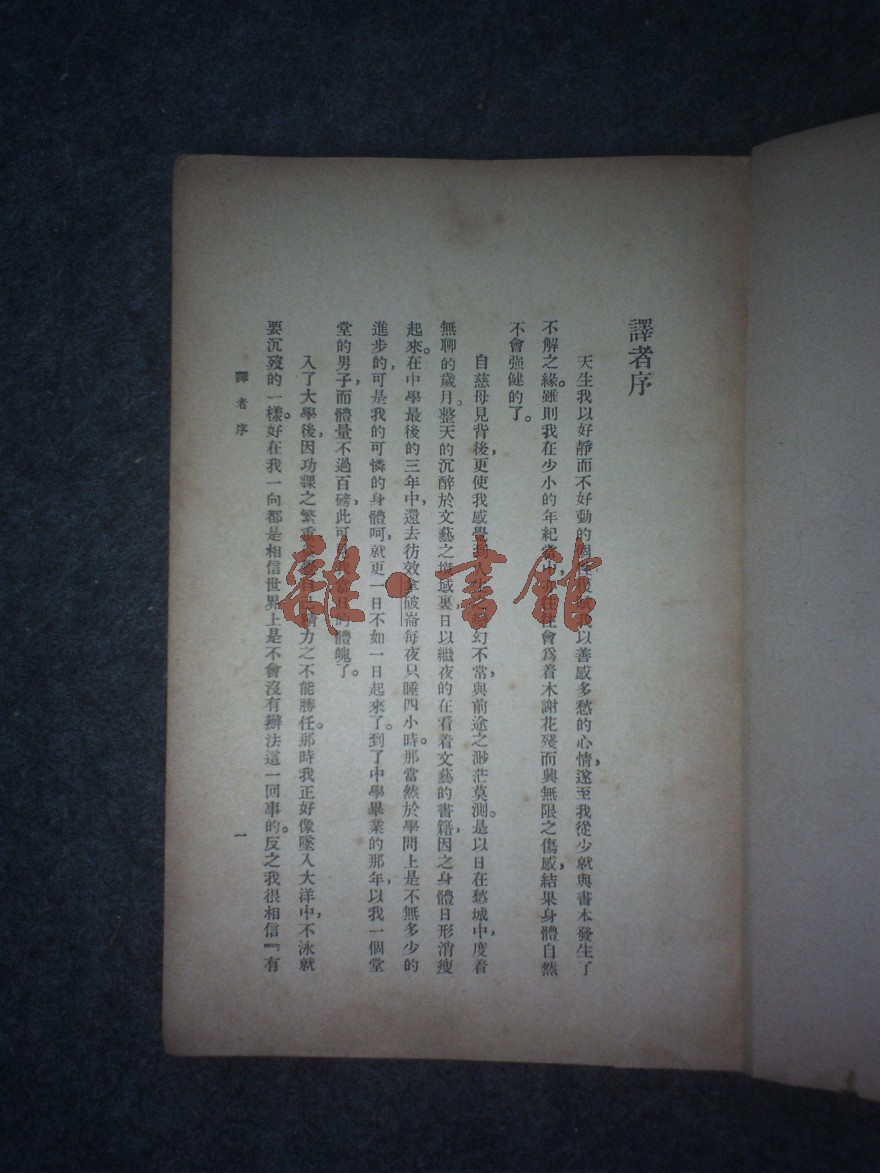 譯者序
天生我以好靜而不好動的個性以善感多愁的心情，遂至我從少就與書本發生了
不解之緣。雖則我在少小的年紀當中，往往會爲着木謝花殘而興無限之傷感，結果身體自然
不會強健的了。
自慈母見背後，更使我感覺到人生幻不常，與前途之渺茫莫測。是以日在愁城中，度着
無聊的歲月。整天的沉醉於文藝之域裏，日以繼夜的在看着文藝的書籍，因之身體日形消瘦
起來。在中學最後的三年中，還去彷效拿破崙每夜只睡四小時。那當然於學問上是不無多少的
進步的，可是我的可憐的身體呵，就更一日不如一日起來了。到了中學畢業的那年，以我一個堂
堂的男子，而體量不過百磅，此可的體魄了。
入了大學後，因功課之繁重，力之不能勝任。那時我正好像墜入大洋中，不泳就
要沉歿的一樣。好在我一向都是相信世界上是不會沒有辦法這一回事的。反之我很相信『有
譯者序
一
雜·書館